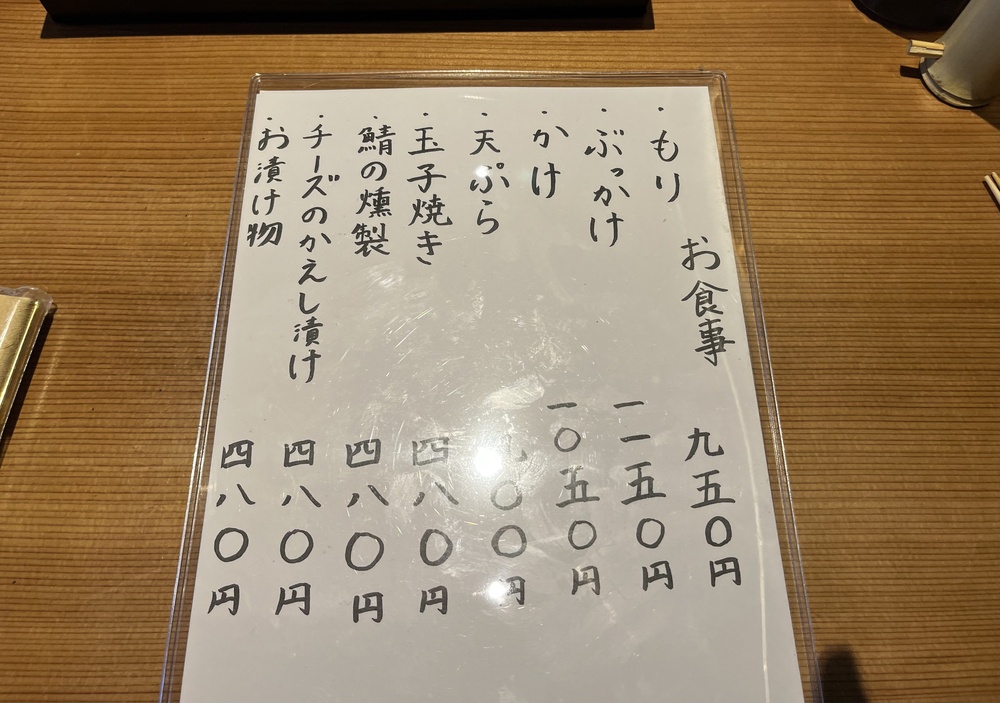 お食事
・もり 九五〇円
・ぶっかけ 一一五〇円
・かけ 一〇五〇円
・天ぷら 〇〇円
・玉子焼き 四八〇円
・鯖の燻製 四八〇円
・チーズのかえし漬け 四八〇円
・お漬け物 四八〇円